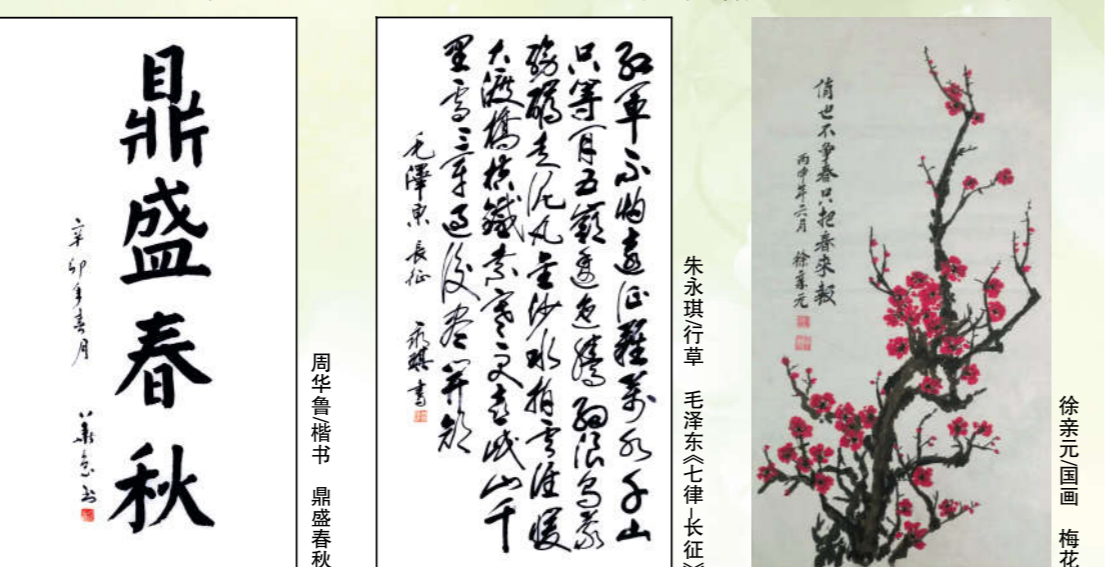 鼎盛春秋
辛卯年春月
周华鲁/楷书 鼎盛春秋
紅軍不怕遠征難萬水千山
只等闲五嶺逶迤騰細浪烏蒙
磅礴走泥丸金沙水拍雲崖暖
大渡橋横鐵索寒更喜岷山千
里雪三軍過後盡開顏
毛澤東 長征 永琪書
朱永琪/行草 毛泽东《七律–长征》
俏也不争春只把春来報
丙申年六月 徐亲元
徐亲元/国画 梅花